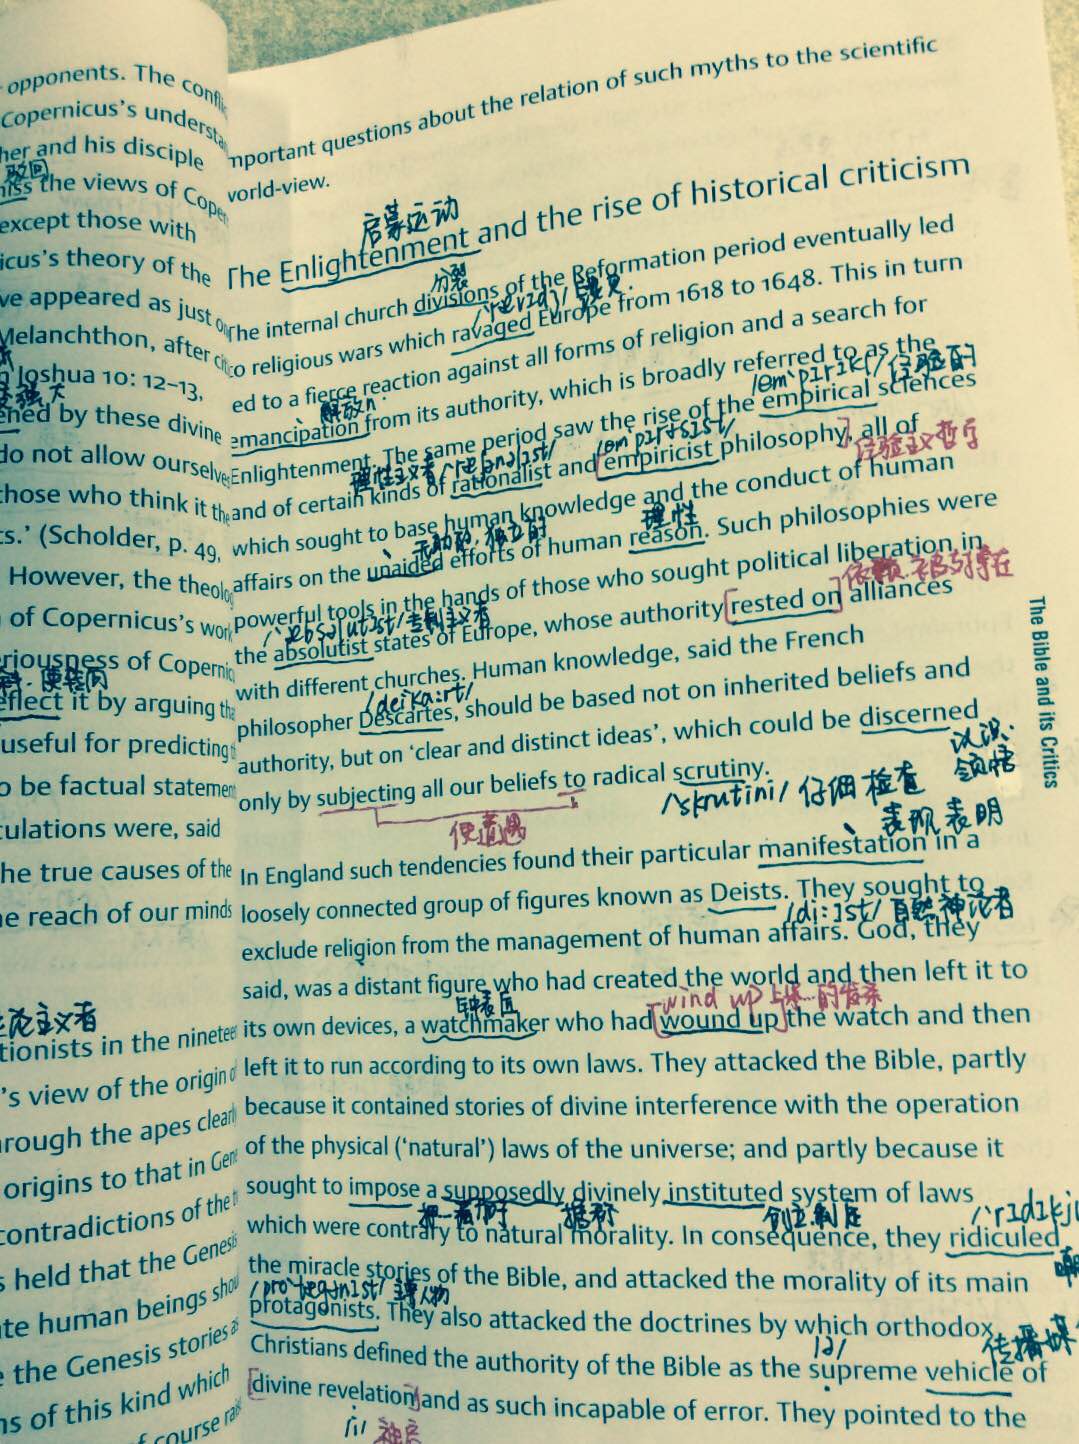 opponents. The confli
Copernicus's understa
her and his disciple
驳回
niss the views of Coper
except those with
icus's theory of the
ve appeared as just o
Melanchthon, after
Joshua 10: 12–13,
ened by these divine
do not allow ourselves
those who think it the
ts.' (Scholder, p. 49,
However, the theolo
of Copernicus's work
eriousness of Copernic
eflect it by arguing tha
useful for predicting
o be factual statemen
culations were, said
he true causes of the
he reach of our minds
论主义者
tionists in the ninetee
's view of the origin of
rough the apes clearly
origins to that in Gene
contradictions of the
s held that the Genesis
ate human beings shou
e the Genesis stories as
ns of this kind which
of course
mportant questions about the relation of such myths to the scientific
world-view.
启蒙运动
The Enlightenment and the rise of historical criticism
分裂
The internal church divisions of the Reformation period eventually led
/ˈrævɪdʒ/
to religious wars which ravaged Europe from 1618 to 1648. This in turn
ed to a fierce reaction against all forms of religion and a search for
解放n. /emˈpɪrɪkl/ 经验的
emancipation from its authority, which is broadly referred to as the
Enlightenment. The same period saw the rise of the empirical sciences
理性主义者 /ˈræʃnəlɪst/ /empɪrɪsɪst/ 经验主义哲学
and of certain kinds of rationalist and [empiricist philosophy], all of
which sought to base human knowledge and the conduct of human
无助的, 独立的 理性
affairs on the unaided efforts of human reason. Such philosophies were
powerful tools in the hands of those who sought political liberation in
/ˈæbsəlutɪst/ 专制主义者
the absolutist states of Europe, whose authority [rested on] alliances
with different churches. Human knowledge, said the French
/deika:rt/
philosopher Descartes, should be based not on inherited beliefs and
authority, but on 'clear and distinct ideas', which could be discerned
认识、领悟
only by subjecting all our beliefs to radical scrutiny.
/skrutini/ 仔细检查
使遭遇
表现 表明
In England such tendencies found their particular manifestation in a
loosely connected group of figures known as Deists. They sought to
/di:ɪst/ 自然神论者
exclude religion from the management of human affairs. God, they
said, was a distant figure who had created the world and then left it to
钟表匠 wind up 上紧…的发条
its own devices, a watchmaker who had [wound up] the watch and then
left it to run according to its own laws. They attacked the Bible, partly
because it contained stories of divine interference with the operation
of the physical ('natural') laws of the universe; and partly because it
sought to impose a supposedly divinely instituted system of laws
把…强加于 据称 创立.制定
which were contrary to natural morality. In consequence, they ridiculed
the miracle stories of the Bible, and attacked the morality of its main
主人物
protagonists. They also attacked the doctrines by which orthodox
/ə/ 传播媒
Christians defined the authority of the Bible as the supreme vehicle of
[divine revelation] and as such incapable of error. They pointed to the
/i/ 神启
The Bible and its Critics